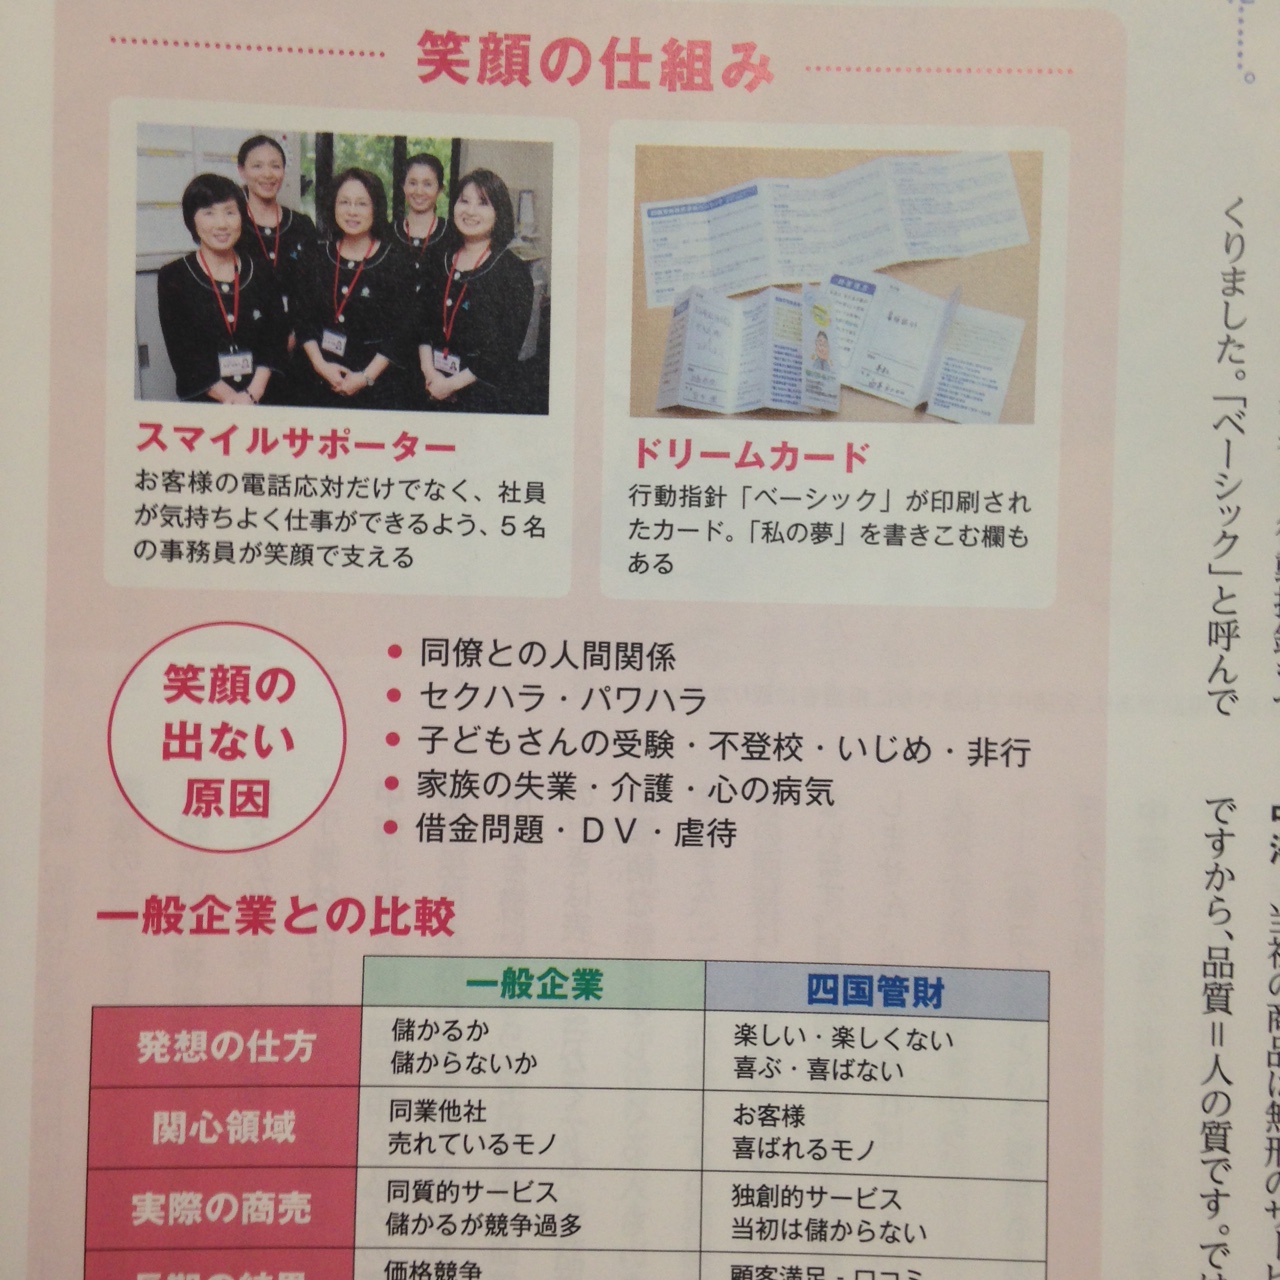 笑顔の仕組み
スマイルサポーター
お客様の電話応対だけでなく、社員
が気持ちよく仕事ができるよう、５名
の事務員が笑顔で支える
ドリームカード
行動指針「ベーシック」が印刷され
たカード。「私の夢」を書きこむ欄も
ある
笑顔の
出ない
原因
• 同僚との人間関係
• セクハラ・パワハラ
• 子どもさんの受験・不登校・いじめ・非行
• 家族の失業・介護・心の病気
• 借金問題・ＤＶ・虐待
一般企業との比較
一般企業
四国管財
発想の仕方
儲かるか
儲からないか
楽しい・楽しくない
喜ぶ・喜ばない
関心領域
同業他社
売れているモノ
お客様
喜ばれるモノ
実際の商売
同質的サービス
儲かるが競争過多
独創的サービス
当初は儲からない
価格競争
顧客満足・口コミ
くりました。「ベーシック」と呼んで
ですから、品質＝人の質です。で